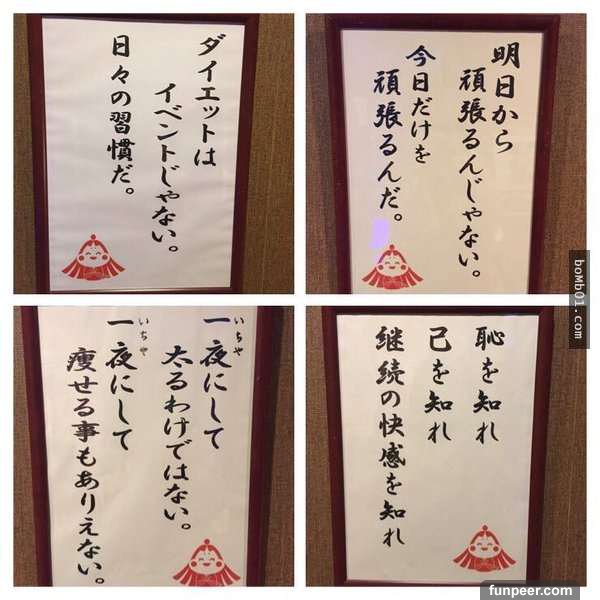 ダイエットは
イベントじゃない。
日々の習慣だ。
明日から
頑張るんじゃない。
今日だけを
頑張るんだ。
一夜にして
いちや
太るわけではない。
一夜にして
いちや
痩せる事もありえない。
恥を知れ
己を知れ
継続の快感を知れ
boMb01.com
funpeer.com